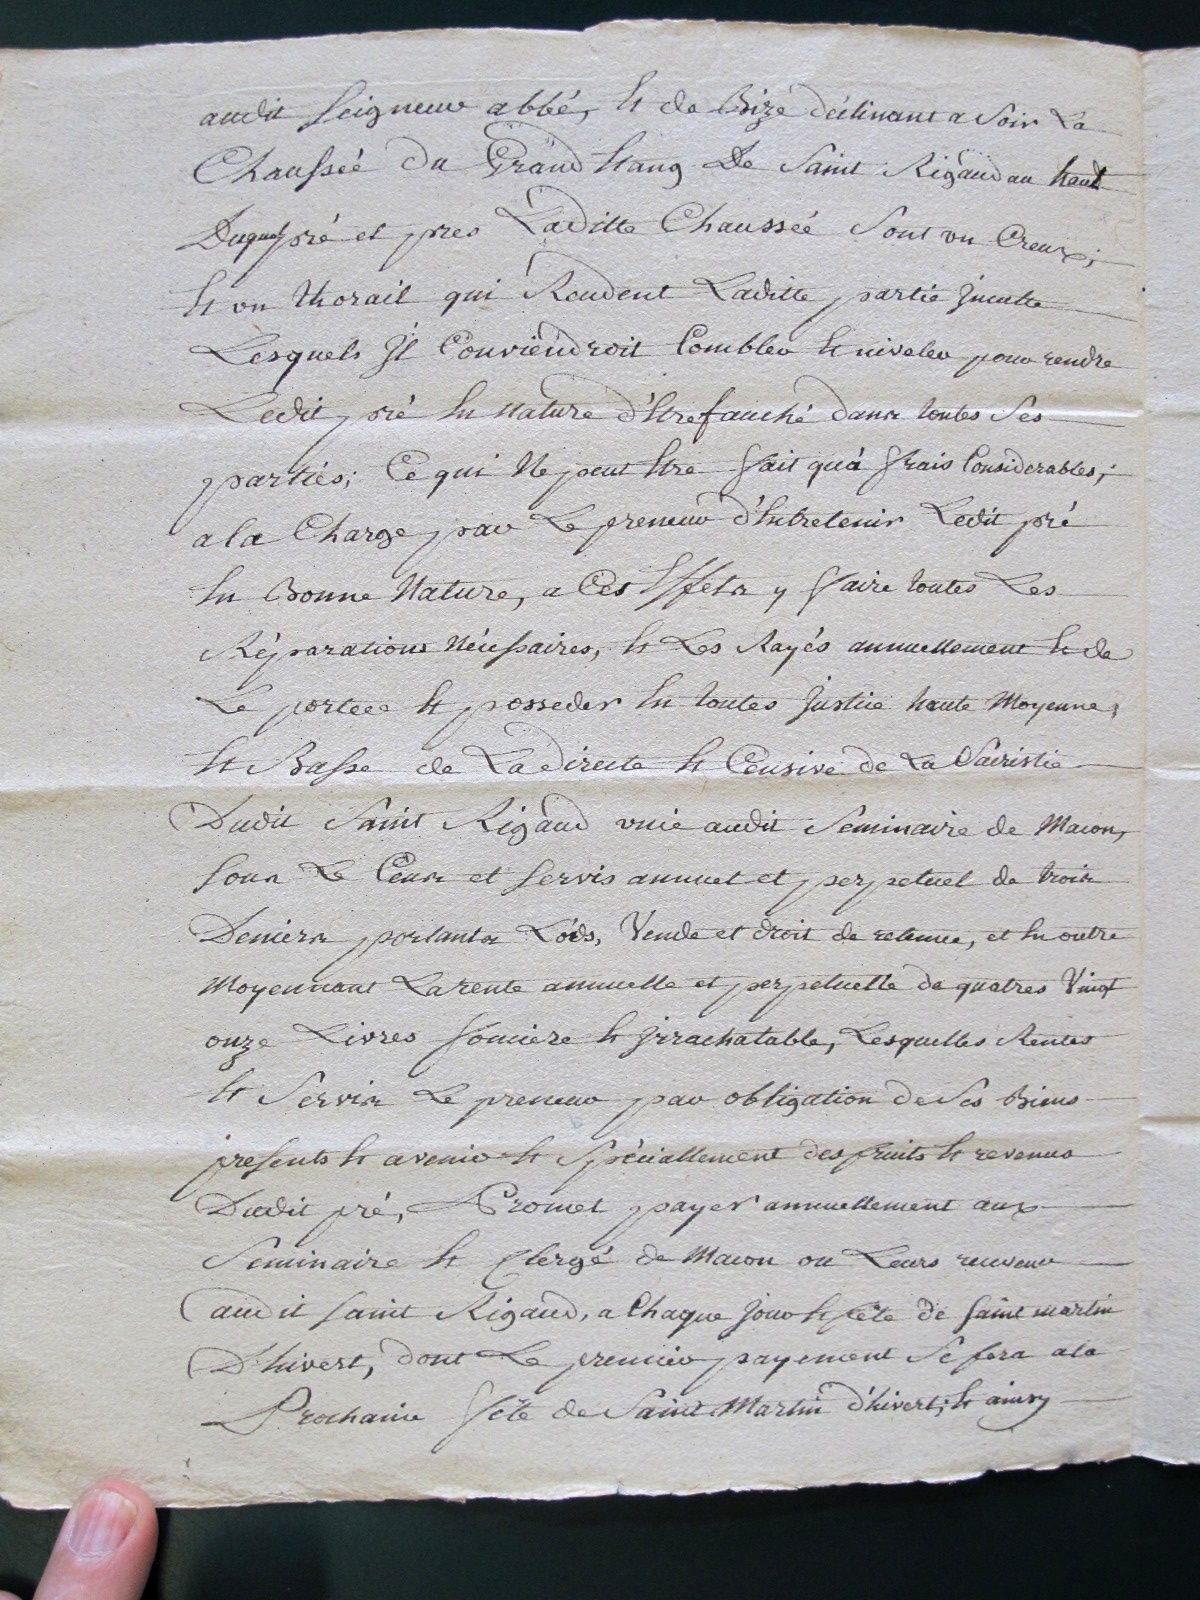 audit Seigneur abbé, Et de Bizé déclinant a Soir La
Chaussée du Grand Etang De Saint Rigaud au haut
Duquel pré et pres Laditte Chaussée Sont un Creux;
Et un qui Rendent Laditte partie Jnculte
Lesquels Jl Conviendroit Combler Et niveler pour rendre
Ledit pré En Nature d'Etre fauché dans toutes Ses
parties; Ce qui Ne peut Etre fait qu'à frais Considerables;
a la Charge par Le preneur d'Entretenir Ledit pré
En Bonne Nature, a Ces Effets y faire toutes Les
Réparations Nécessaires, Et Les Rayés annuellement Et de
Le porter Et posseder En toutes Justice haute Moyenne,
Et Basse de La directe Et Censive de La Sacristie
Dudit Saint Rigaud unie audit Seminaire de Macon,
Sous Le Cens et Servis annuel et perpetuel de trois
Deniers portants Lods, Vende et droit de retenue, et En outre
Moyennant La rente annuelle et perpetuelle de quatres Vingt
onze Livres fonciere Et jrrachatable, Lesquelles Rentes
Et Servis Le preneur par obligation de Ses Biens
presents Et avenir Et Spéciallement des fruits Et revenus
Dudit pré, Promet payer annuellement aux
Seminaire Et Clergé de Macon ou Leurs receveur
audit Saint Rigaud, a Chaque jour Et fête de Saint martin
D'hivert, dont Le premier payement Se fera a la
Prochaine fête de Saint Martin d'hivert; Et ainsy